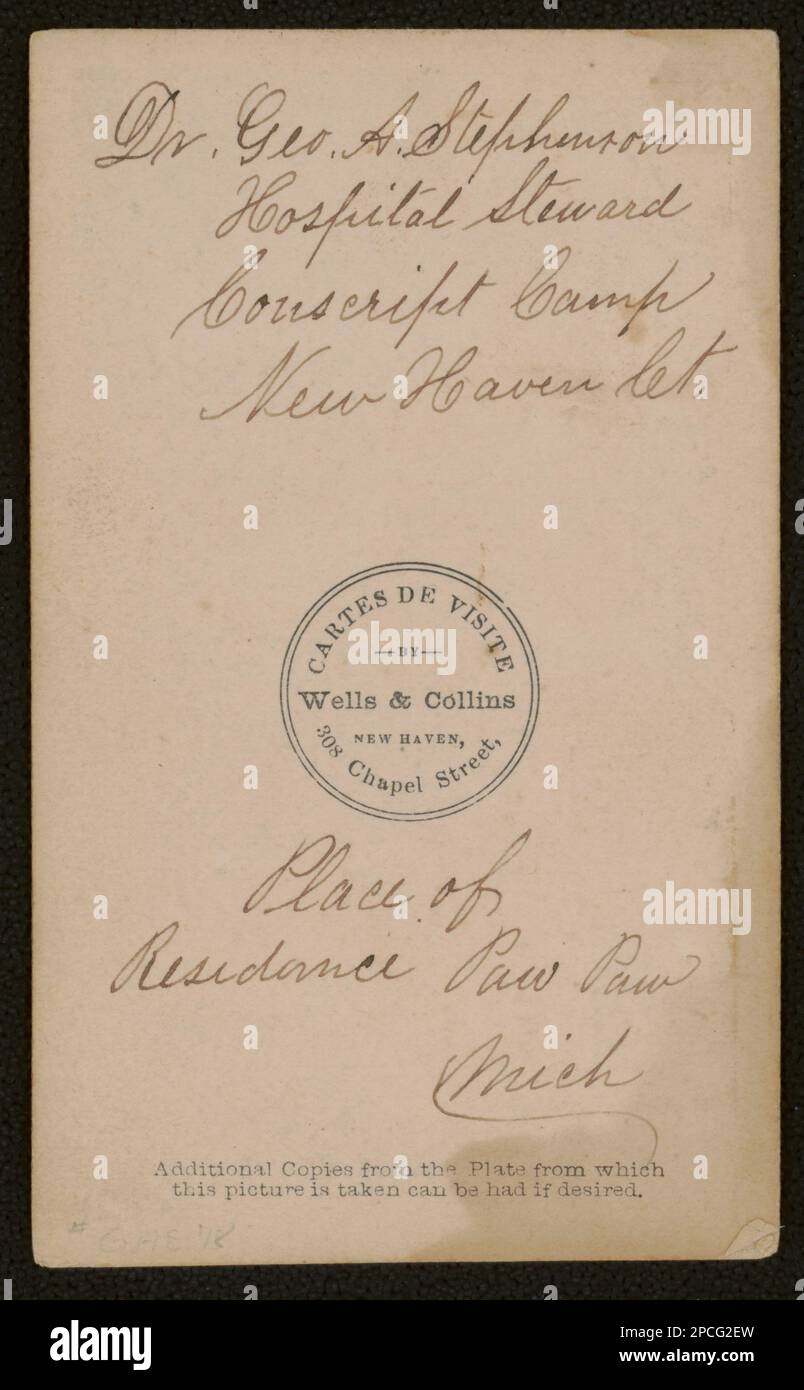 Dr. Geo. A. Stephenson
Hospital Steward
Conscript Camp
New Haven Ct.
CARTES DE VISITE
—BY—
Wells & Collins
NEW HAVEN,
308 Chapel Street,
Place of
Residance Paw Paw
Mich
Additional Copies from the Plate from which
this picture is taken can be had if desired.
alamy
Image ID: 2PCG2EW
www.alamy.com